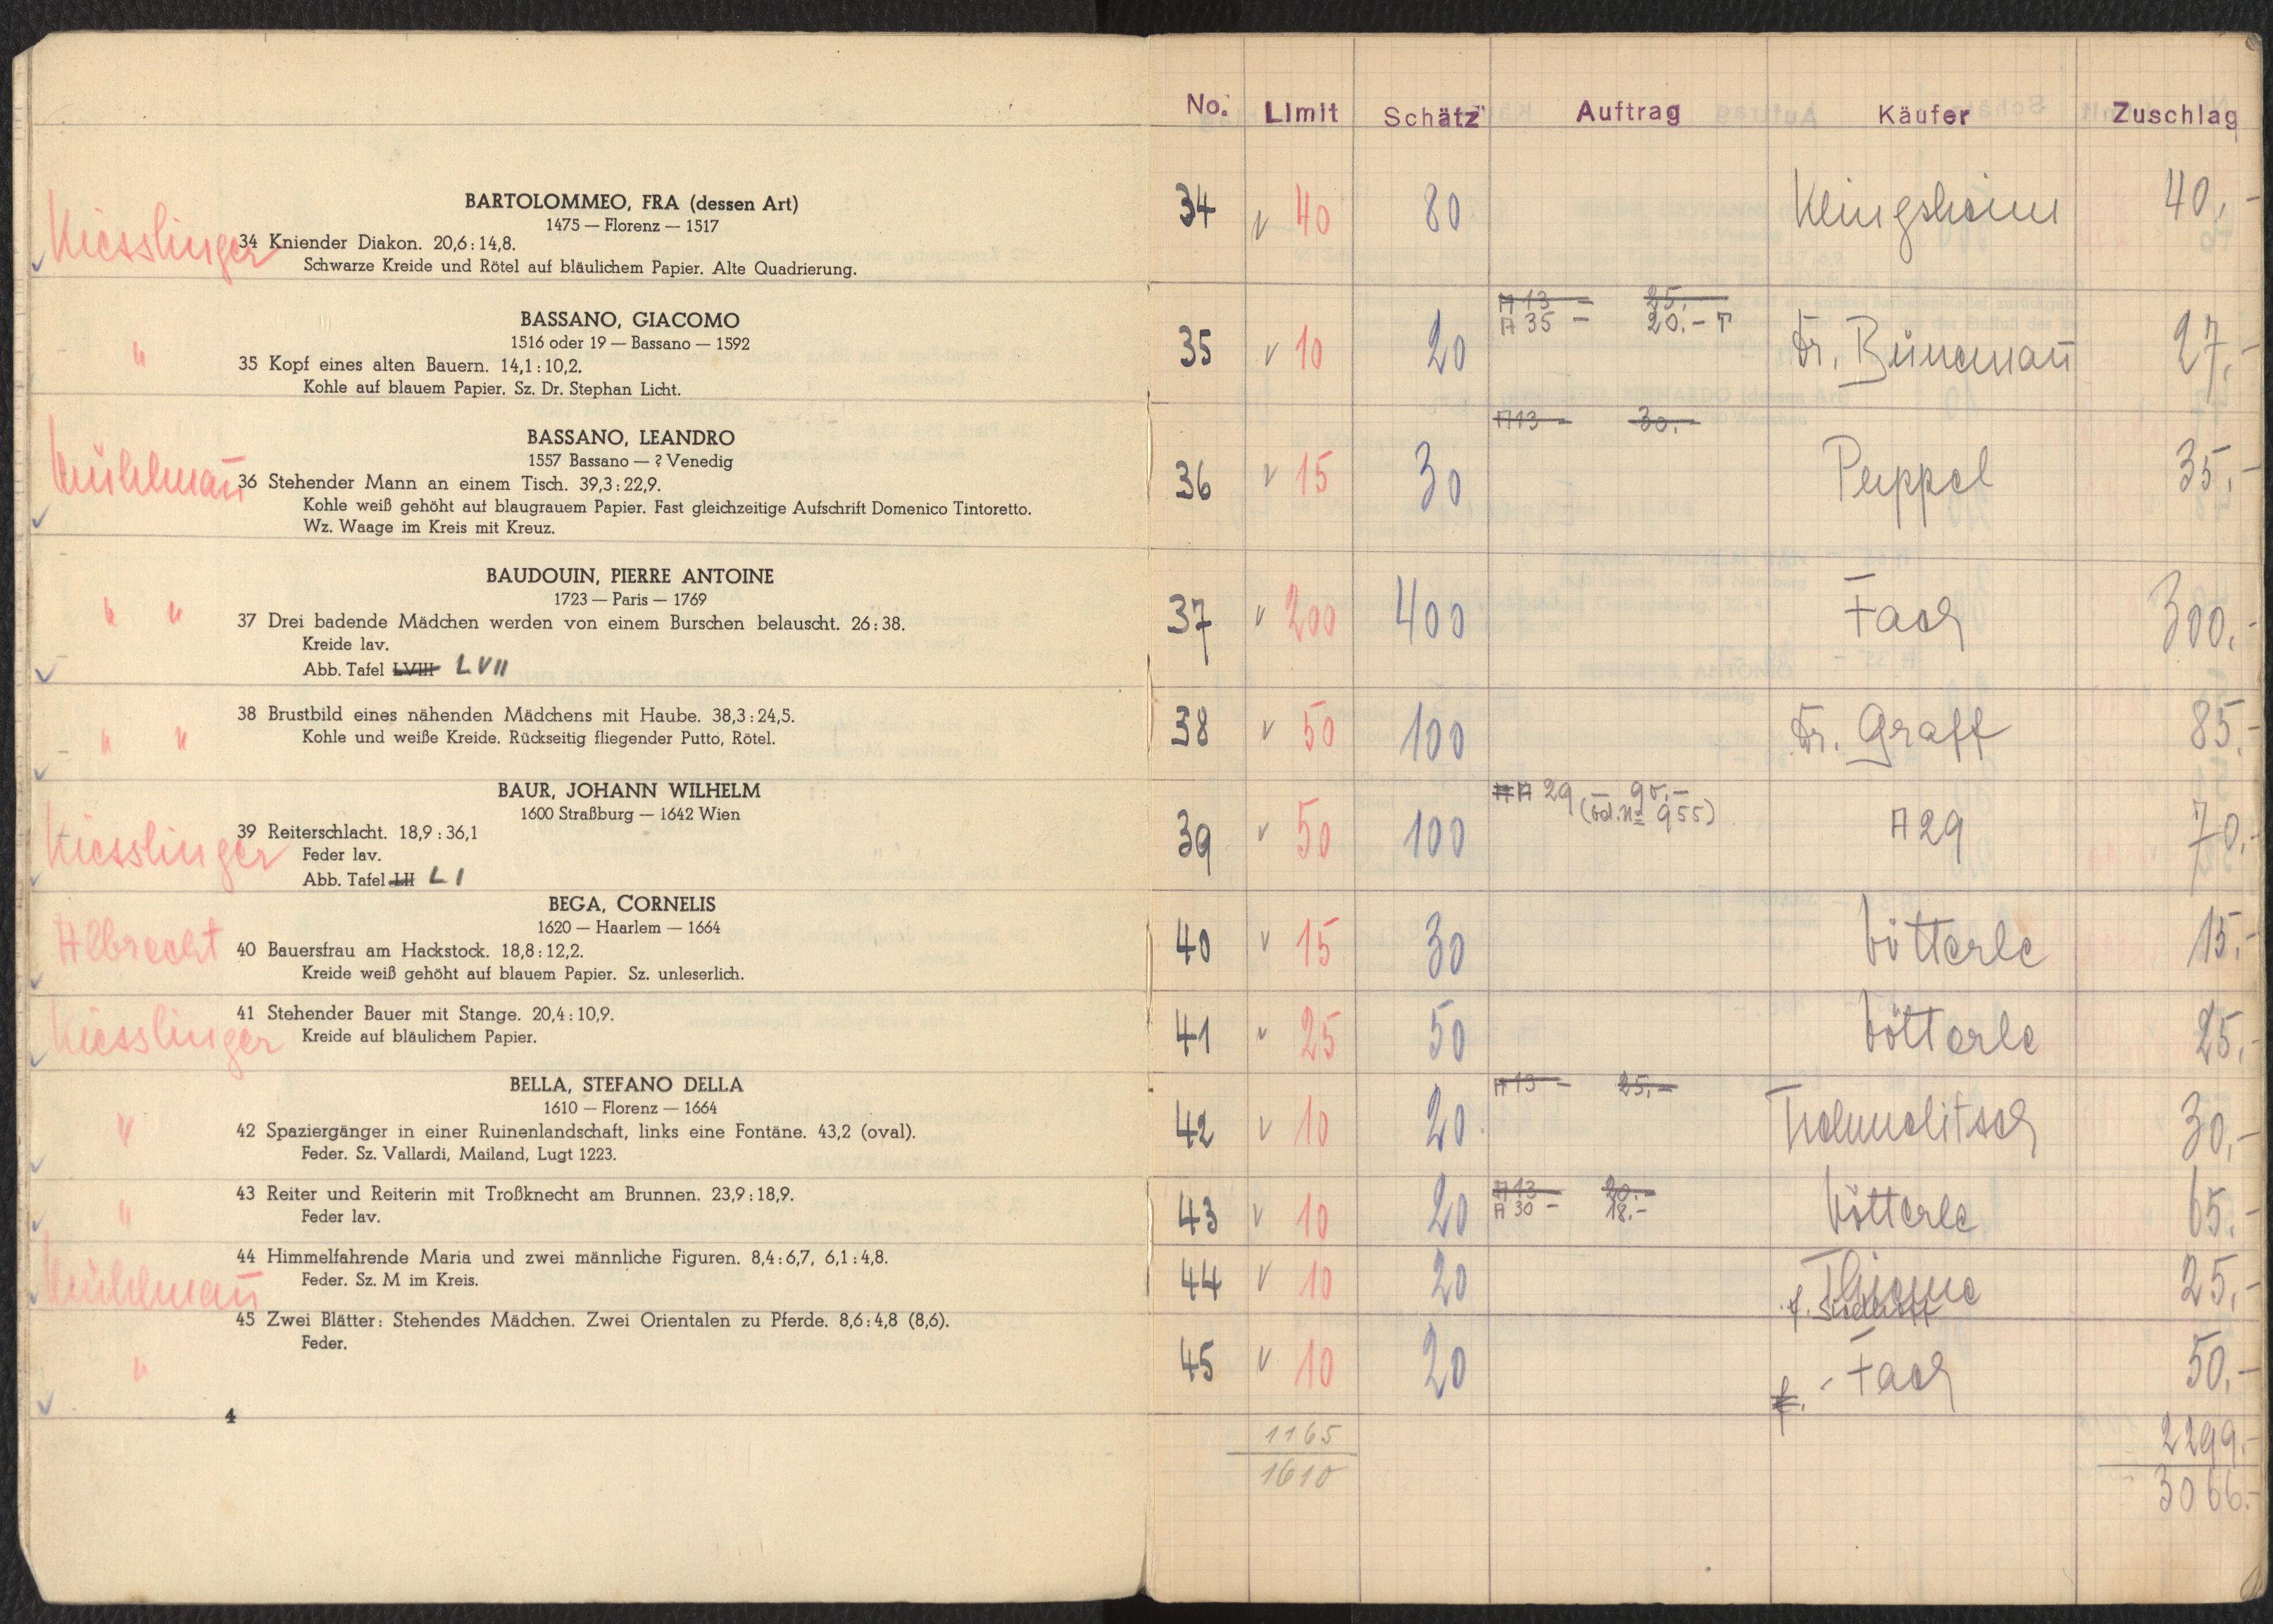 BARTOLOMMEO, FRA (dessen Art)
1475 — Florenz — 1517
Kiesslinger
34 Kniender Diakon. 20,6 : 14,8.
Schwarze Kreide und Rötel auf bläulichem Papier. Alte Quadrierung.
BASSANO, GIACOMO
1516 oder 19 — Bassano — 1592
"
35 Kopf eines alten Bauern. 14,1 : 10,2.
Kohle auf blauem Papier. Sz. Dr. Stephan Licht.
BASSANO, LEANDRO
1557 Bassano — ? Venedig
Mühlmañ
36 Stehender Mann an einem Tisch. 39,3 : 22,9.
Kohle weiß gehöht auf blaugrauem Papier. Fast gleichzeitige Aufschrift Domenico Tintoretto.
Wz. Waage im Kreis mit Kreuz.
BAUDOUIN, PIERRE ANTOINE
1723 — Paris — 1769
" "
37 Drei badende Mädchen werden von einem Burschen belauscht. 26 : 38.
Kreide lav.
Abb. Tafel LVIII LVII
38 Brustbild eines nähenden Mädchens mit Haube. 38,3 : 24,5.
" "
Kohle und weiße Kreide. Rückseitig fliegender Putto, Rötel.
BAUR, JOHANN WILHELM
1600 Straßburg — 1642 Wien
39 Reiterschlacht. 18,9 : 36,1
Kiesslinger
Feder lav.
Abb. Tafel LII LI
BEGA, CORNELIS
1620 — Haarlem — 1664
Albrecht
40 Bauersfrau am Hackstock. 18,8 : 12,2.
Kreide weiß gehöht auf blauem Papier. Sz. unleserlich.
41 Stehender Bauer mit Stange. 20,4 : 10,9.
Kiesslinger
Kreide auf bläulichem Papier.
BELLA, STEFANO DELLA
1610 — Florenz — 1664
"
42 Spaziergänger in einer Ruinenlandschaft, links eine Fontäne. 43,2 (oval).
Feder. Sz. Vallardi, Mailand, Lugt 1223.
43 Reiter und Reiterin mit Troßknecht am Brunnen. 23,9 : 18,9.
"
Feder lav.
44 Himmelfahrende Maria und zwei männliche Figuren. 8,4 : 6,7, 6,1 : 4,8.
Mühlmañ
Feder. Sz. M im Kreis.
45 Zwei Blätter: Stehendes Mädchen. Zwei Orientalen zu Pferde. 8,6 : 4,8 (8,6).
Feder.
"
4
No. Limit Schätz Auftrag Käufer Zuschlag
34 v 40 80 Klingsheim 40,-
A 13 - 25,-
A 35 - 20.-
35 v 10 20 Dr. Bünemañ 27,-
A13 - 30.-
36 v 15 30 Peppel 35,-
37 v 200 400 Fach 300,-
38 v 50 100 Dr. Graff 85.-
A 29 90,-
(od. No 955)
39 v 50 100 A 29 70.-
40 v 15 30 Vötterle 15.-
41 v 25 50 Vötterle 25,-
A 13 - 25,-
42 v 10 20 30,-
A 13 - 20.-
A 30 - 18.-
43 v 10 20 Vötterle 65.-
44 v 10 20 Thieme 25,-
45 v 10 20 Fach 50,-
1165 2299.-
1610 3066.-